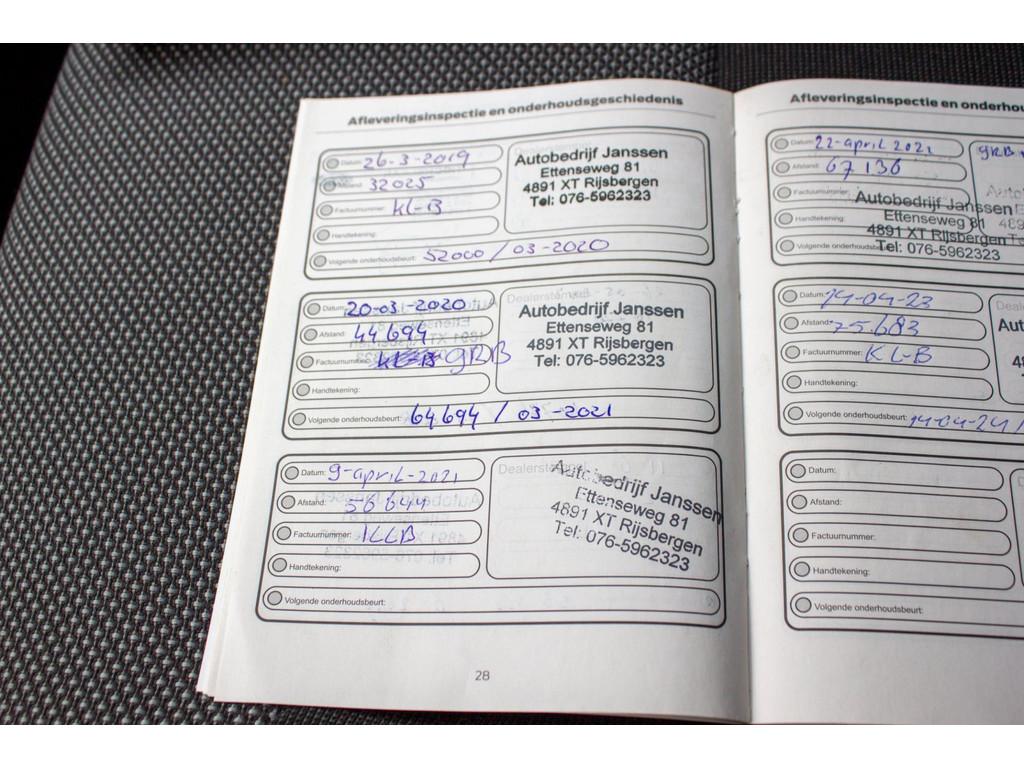 Afleveringsinspectie en onderhoudsgeschiedenis
Datum: 26-3-2019
Afstand: 32025
Factuurnummer: KL-B
Handtekening:
Volgende onderhoudsbeurt: 52000 / 03-2020
Autobedrijf Janssen
Ettenseweg 81
4891 XT Rijsbergen
Tel: 076-5962323
Datum: 20-03-2020
Afstand: 44694
Factuurnummer: GRB
Handtekening:
Volgende onderhoudsbeurt: 64694 / 03-2021
Dealerstempel
Autobedrijf Janssen
Ettenseweg 81
4891 XT Rijsbergen
Tel: 076-5962323
Datum: 9-april-2021
Afstand: 56644
Factuurnummer: KLB
Handtekening:
Volgende onderhoudsbeurt:
Dealerstempel
Autobedrijf Janssen
Ettenseweg 81
4891 XT Rijsbergen
Tel: 076-5962323
28
Afleveringsinspectie en onderhou
Datum: 22-april 2021
Afstand: 67136
Factuurnummer:
Handtekening:
Volgende onderhoudsbeurt:
GRB
Autobedrijf Janssen
Ettenseweg 81
4891 XT Rijsbergen
Tel: 076-5962323
Datum: 14-04-23
Afstand: 75.683
Factuurnummer: KL-B
Handtekening:
Volgende onderhoudsbeurt: 14-04-24 /
Dealers
Aut
Datum:
Afstand:
Factuurnummer:
Handtekening:
Volgende onderhoudsbeurt: